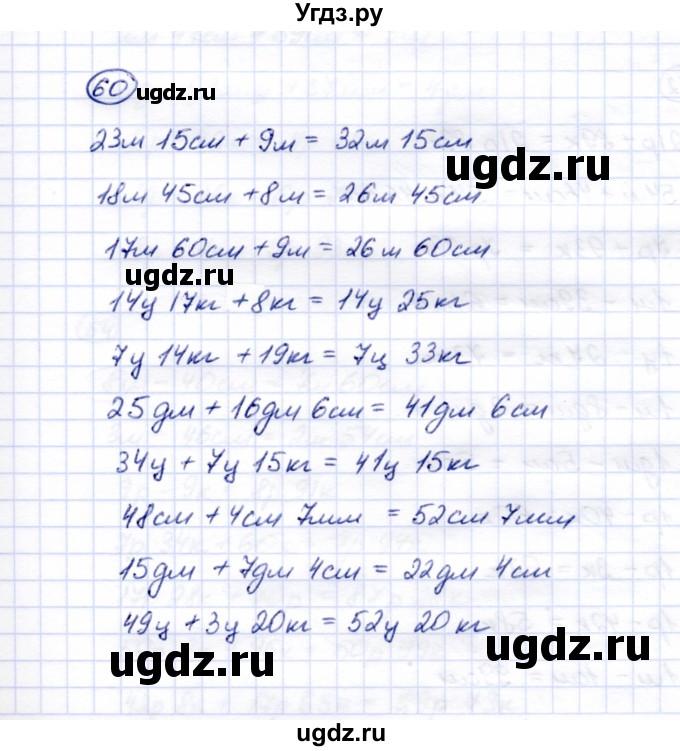 Угдз.ру
60 ugdz.ru
23м 15см + 9м = 32м 15см
ugdz.ru
18м 45см + 8м = 26м 45см
17м 60см + 9м = 26м 60см
ugdz.ru
14ц 17кг + 8кг = 14ц 25кг
7ц 14кг + 19кг = 7ц 33кг
25дм + 16дм 6см = 41дм 6см
34ц + 7ц 15кг = 41ц 15кг
48см + 4см 7мм = 52см 7мм
15дм + 7дм 4см = 22дм 4см
49ц + 3ц 20кг = 52ц 20кг
ugdz.ru ugdz.ru
Угдз.ру